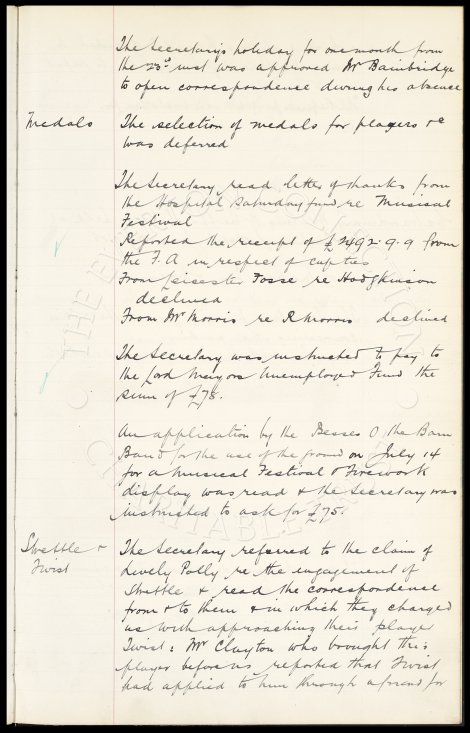 The Secretary's holiday for one month from
the 23d inst was approved Mr Bainbridge
to open correspondence during his absence
Medals
The selection of medals for players &c
was deferred
The Secretary read letter of thanks from
the Hospital Saturday Fund re Musical
Festival
Reported the receipt of £2492.9.9 from
the F.A in respect of cupties
From Leicester Fosse re Hodgkinson
declined
From Mr Morris re R Morris declined
The Secretary was instructed to pay to
the Lord Mayors Unemployed Fund the
sum of £78.
An application by the Besses O' the Barn
Band for the use of the ground on July 14
for a Musical Festival & Firework
display was read & the Secretary was
instructed to ask for £75.
Strettle &
Twist
The Secretary referred to the claim of
Lively Polly re the engagement of
Strettle & read the correspondence
from & to them & in which they charged
us with approaching their player
Twist: Mr Clayton who brought this
player before us reported that Twist
had applied to him through a friend for